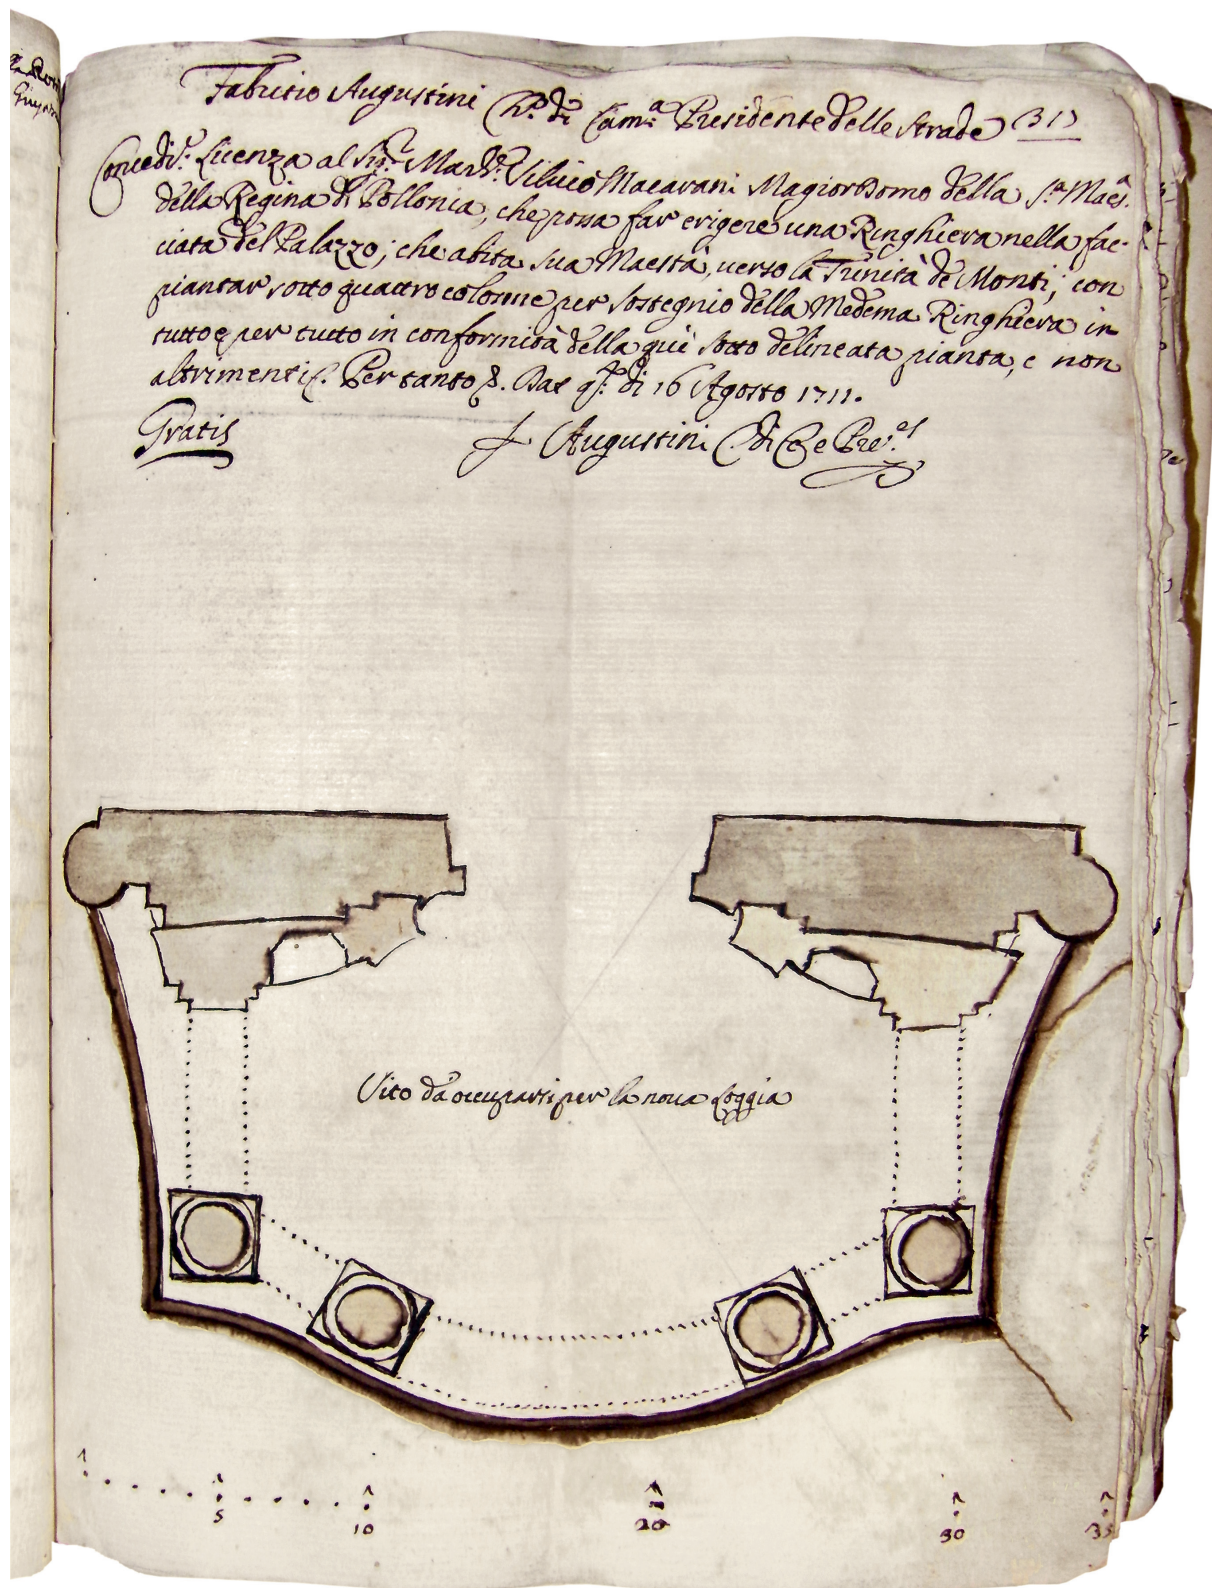 Fabritio Augustini Ch.º di Cam.ª Presidente delle Strade 31)
Concedi.º Licenza al Sig.r March.e Silvio Macarani MagiorDomo della S.ª Maes.ª
della Regina di Pollonia, che possa far erigere una Ringhiera nella fac-
ciata del Palazzo, che abita Sua Maestà, verso la Trinità de Monti, con
piantar sotto quattro colonne per sostegnio della Medema Ringhiera in
tutto e per tutto in conformità della quì sotto delineata pianta, e non
altrimenti. Per tanto &. Dat q.º di 16 Agosto 1711.
Gratis
F Augustini C. di C. e Pre.es
Sito da occuparsi per la nova Loggia
1 5 10 20 30 35